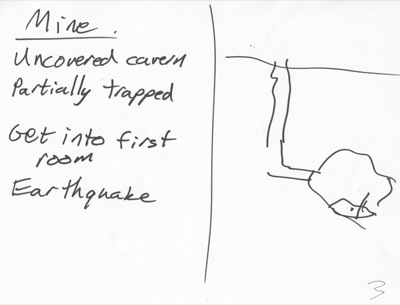 Mine.
Uncovered cavern
Partially trapped
Get into first
room
Earthquake
3